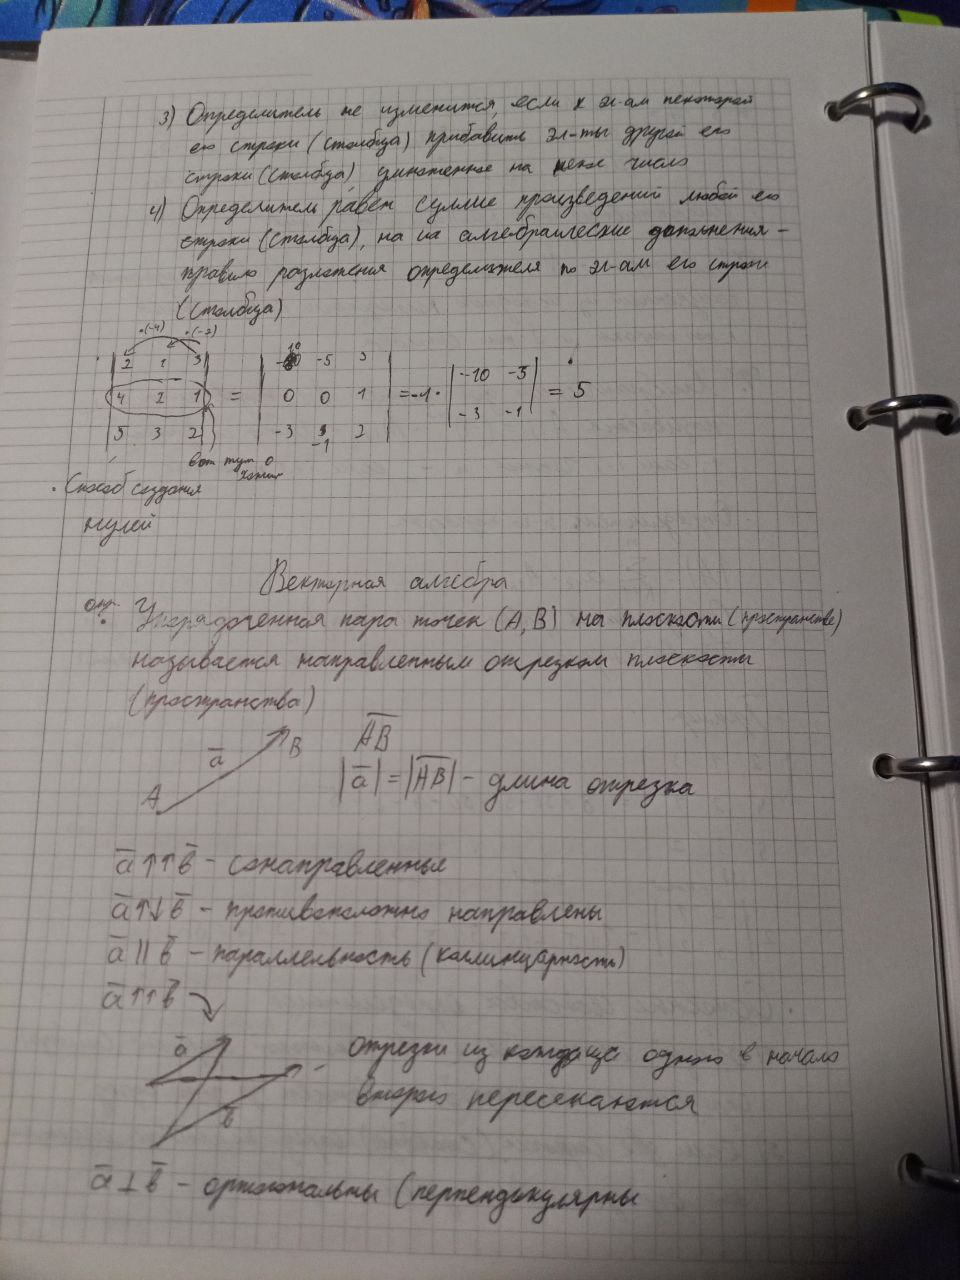 3) Определитель не изменится, если к эл-ам некоторой
его строки (столбца) прибавить эл-ты другой его
строки (столбца), умноженное на некое число
4) Определитель равен сумме произведений любой его
строки (столбца), на их алгебраические дополнения -
правило разложения определителя по эл-ам его строки
(столбца)
·(-4) ·(-2)
2 1 3 -10 -5 3
4 2 1 = 0 0 1 = -1· -10 -5 = 5
5 3 2 -3 -1 2 -3 -1
вот тут 0
· Способ создания
нулей
Векторная алгебра
опр. Упорядоченная пара точек (A, B) на плоскости (пространстве)
называется направленным отрезком плоскости
(пространства)
A a̅ B A̅B̅
|a̅| = |A̅B̅| - длина отрезка
a̅ ↑↑ b̅ - сонаправленные
a̅ ↑↓ b̅ - противоположно направлены
a̅ || b̅ - параллельность (коллинеарность)
a̅ ↑↑ b̅
a̅ отрезки из конца одного в начало
b̅ второго пересекаются
a̅ ⊥ b̅ - ортогональны (перпендикулярны